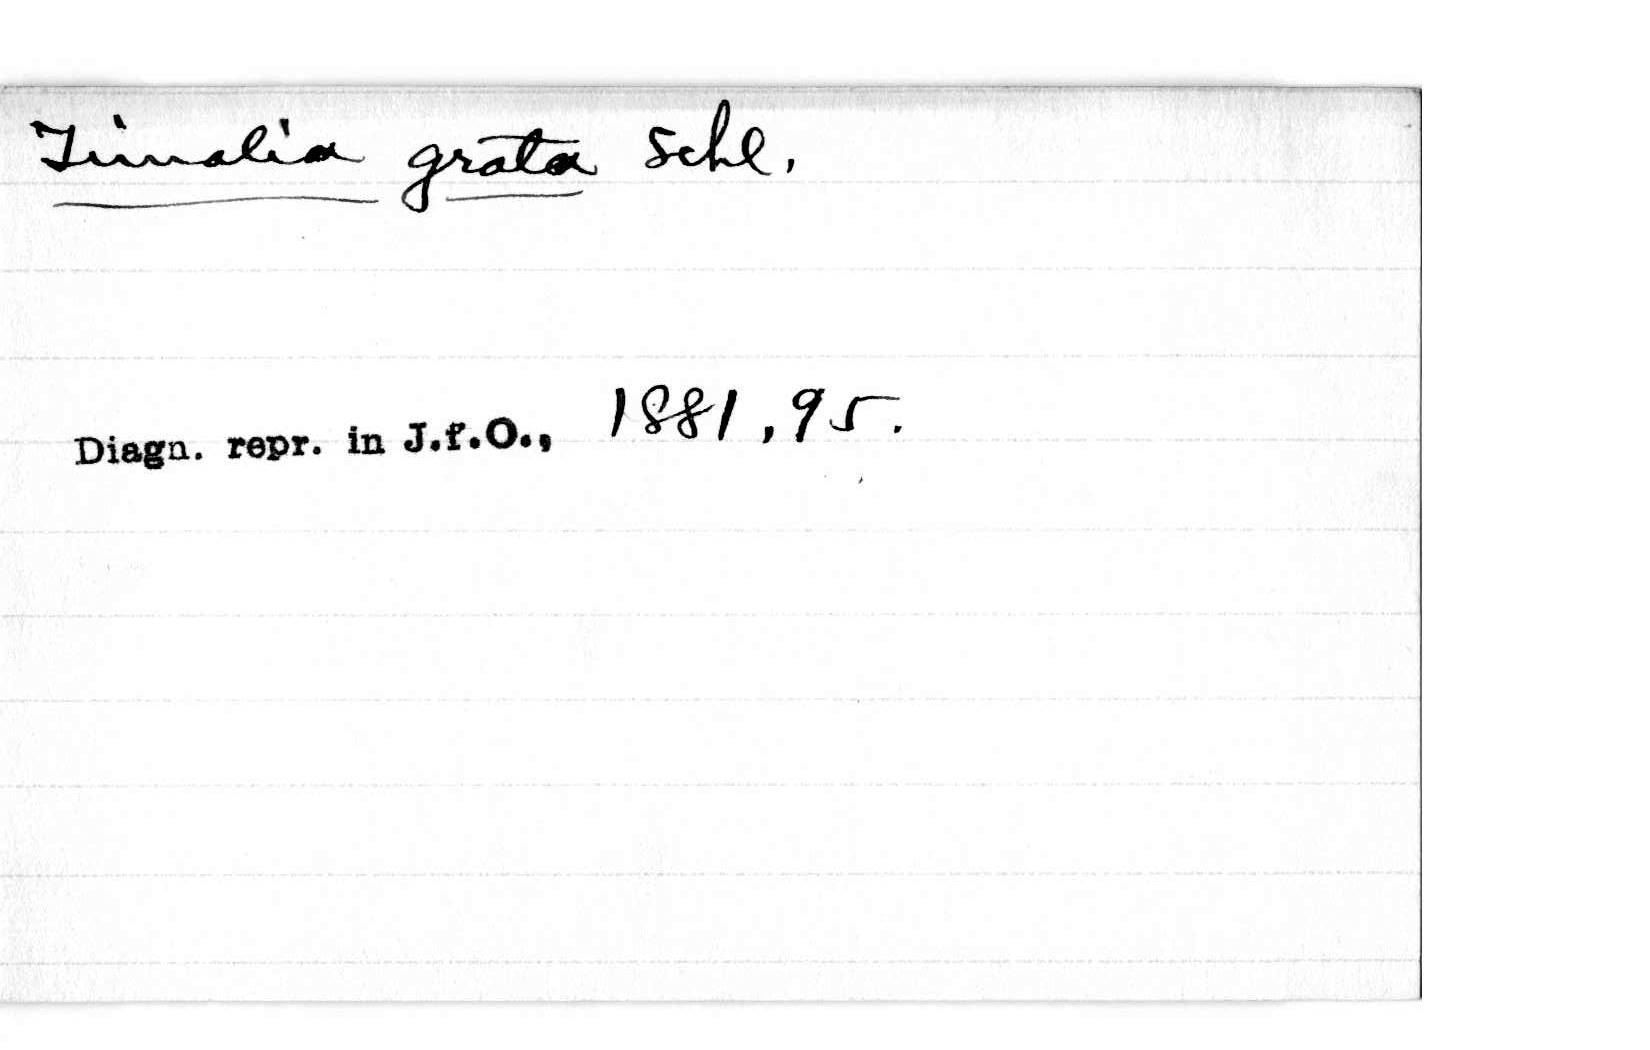 Timalia grata Schl.
Diagn. repr. in J.f.O., 1881, 95.